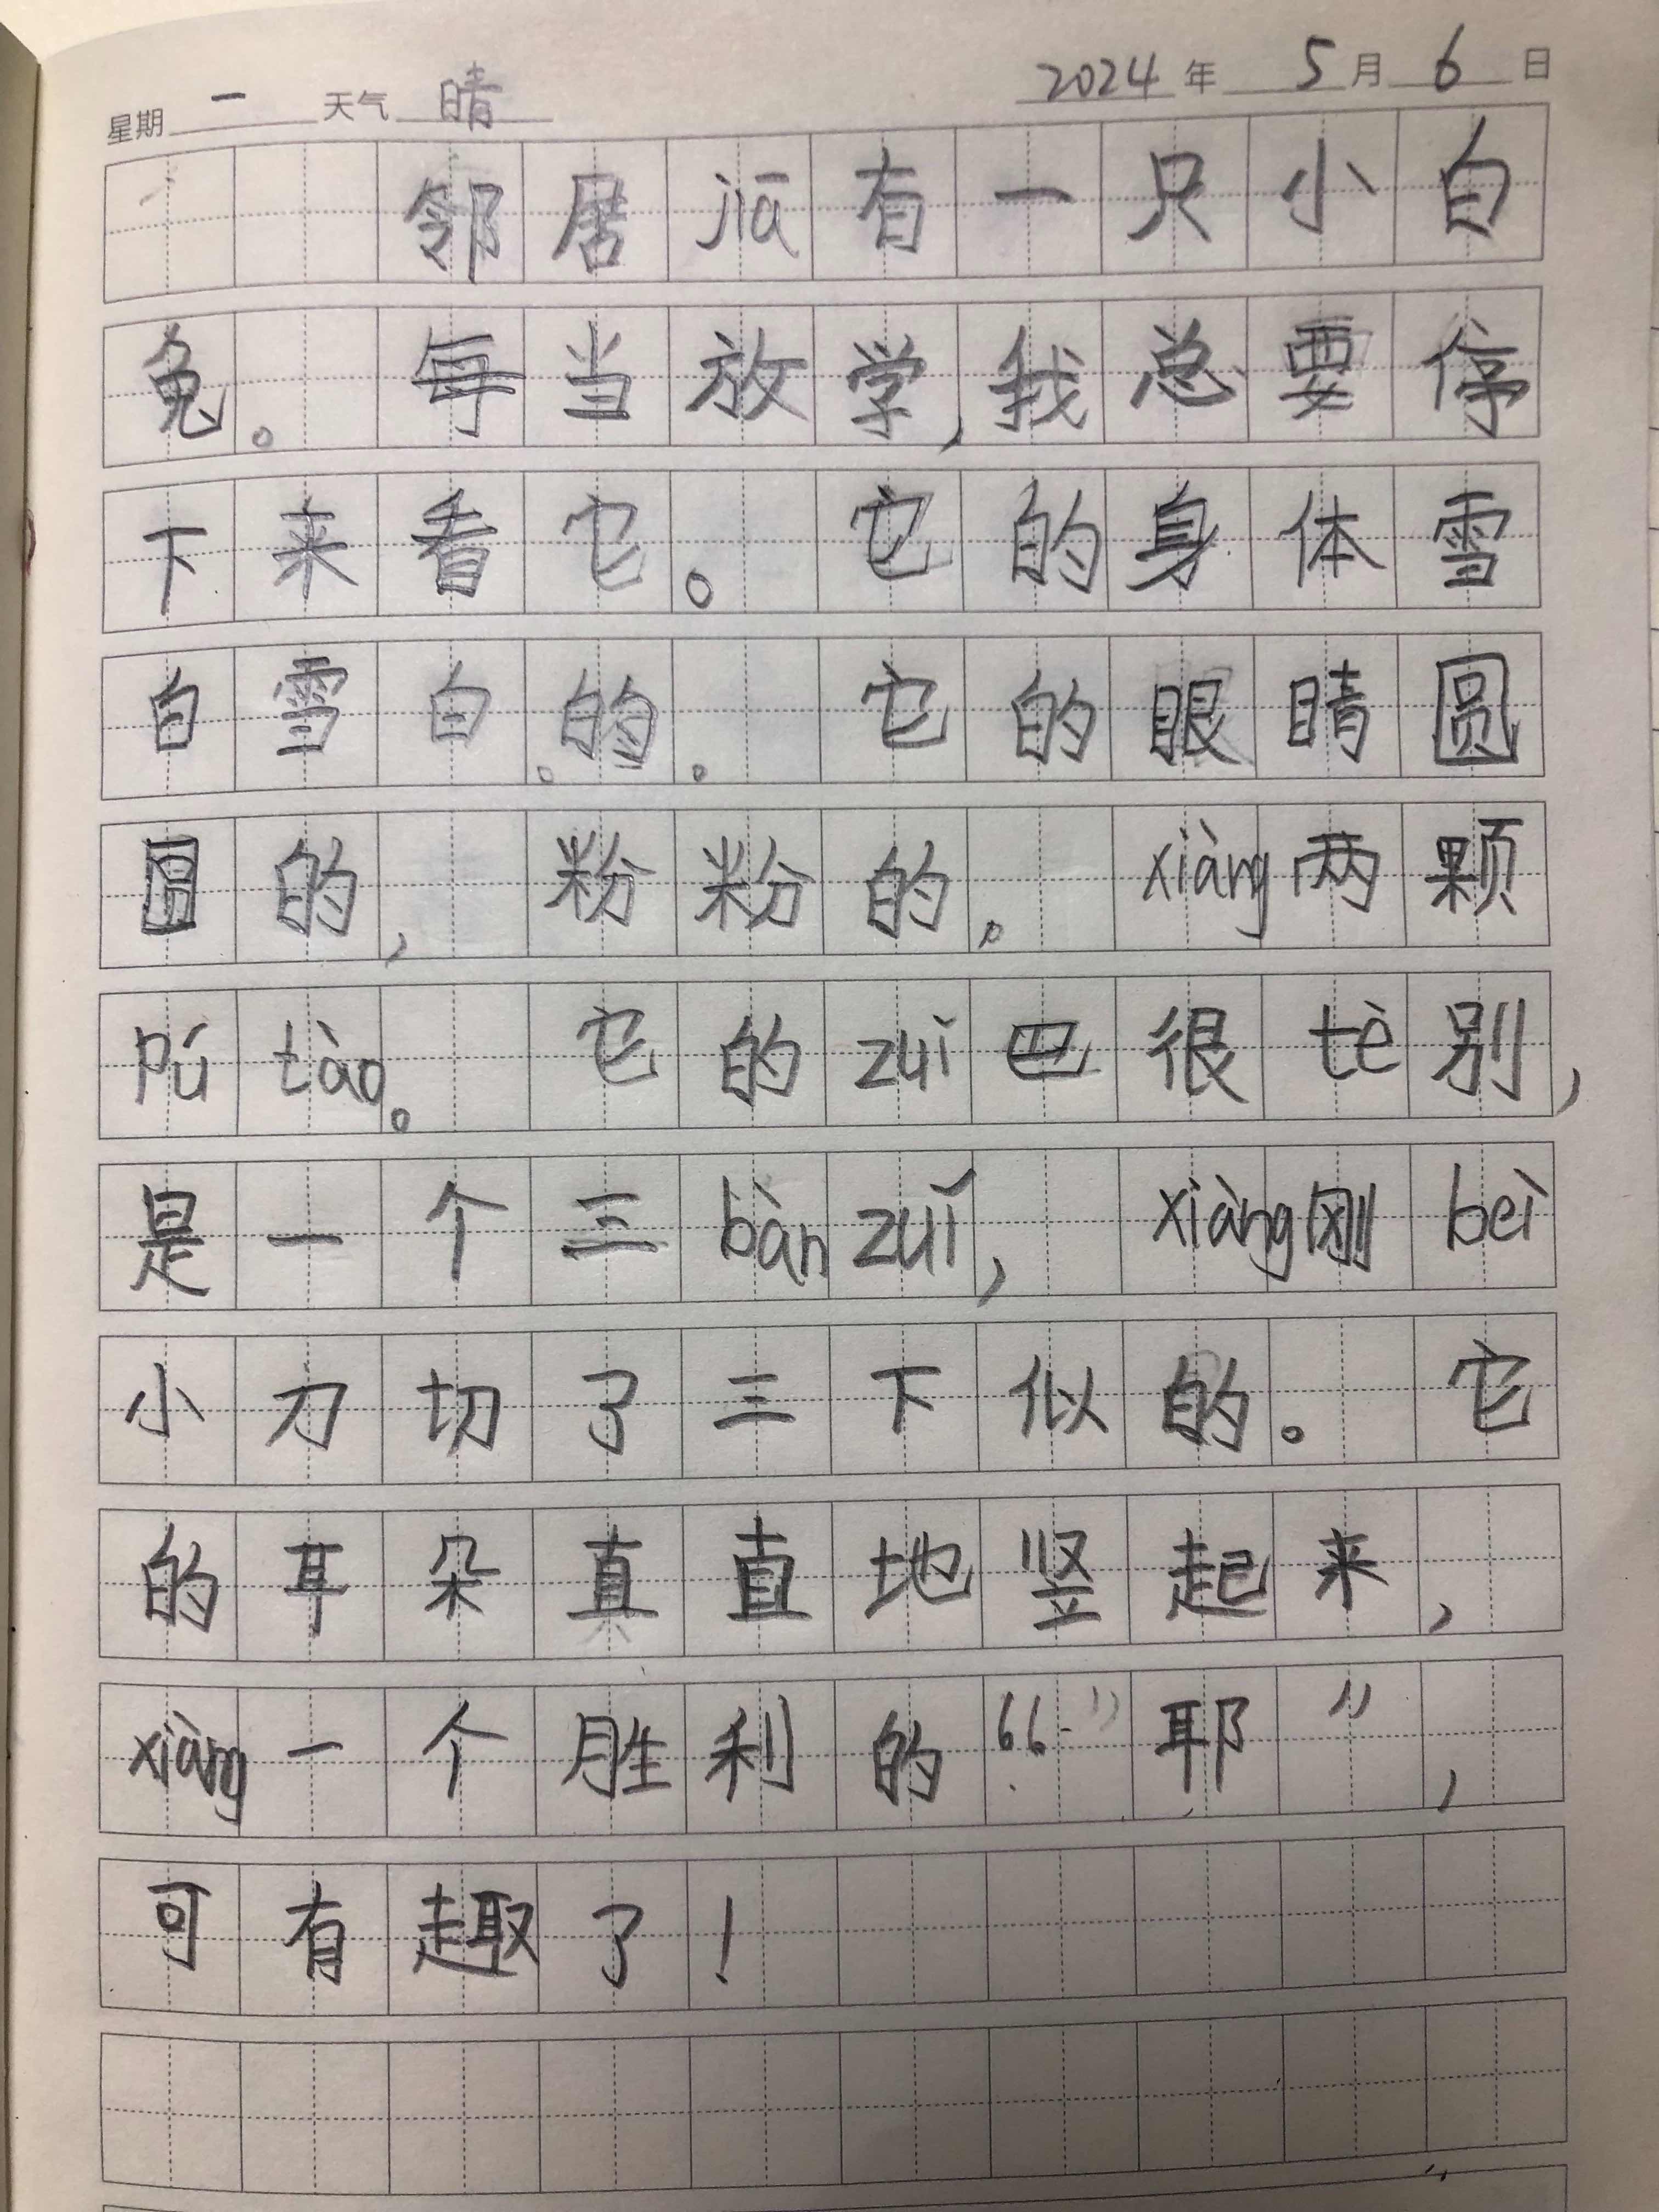 星期 一 天气 晴 2024 年 5 月 6 日
邻居jiā有一只小白
兔。每当放学,我总要停
下来看它。它的身体雪
白雪白的。它的眼睛圆
圆的,粉粉的。xiàng两颗
pú tào。它的zuǐ巴很tè别,
是一个三bàn zuǐ,xiàng刚bèi
小刀切了三下似的。它
的耳朵真直地竖起来,
xiàng一个胜利的“耶”,
可有趣了!